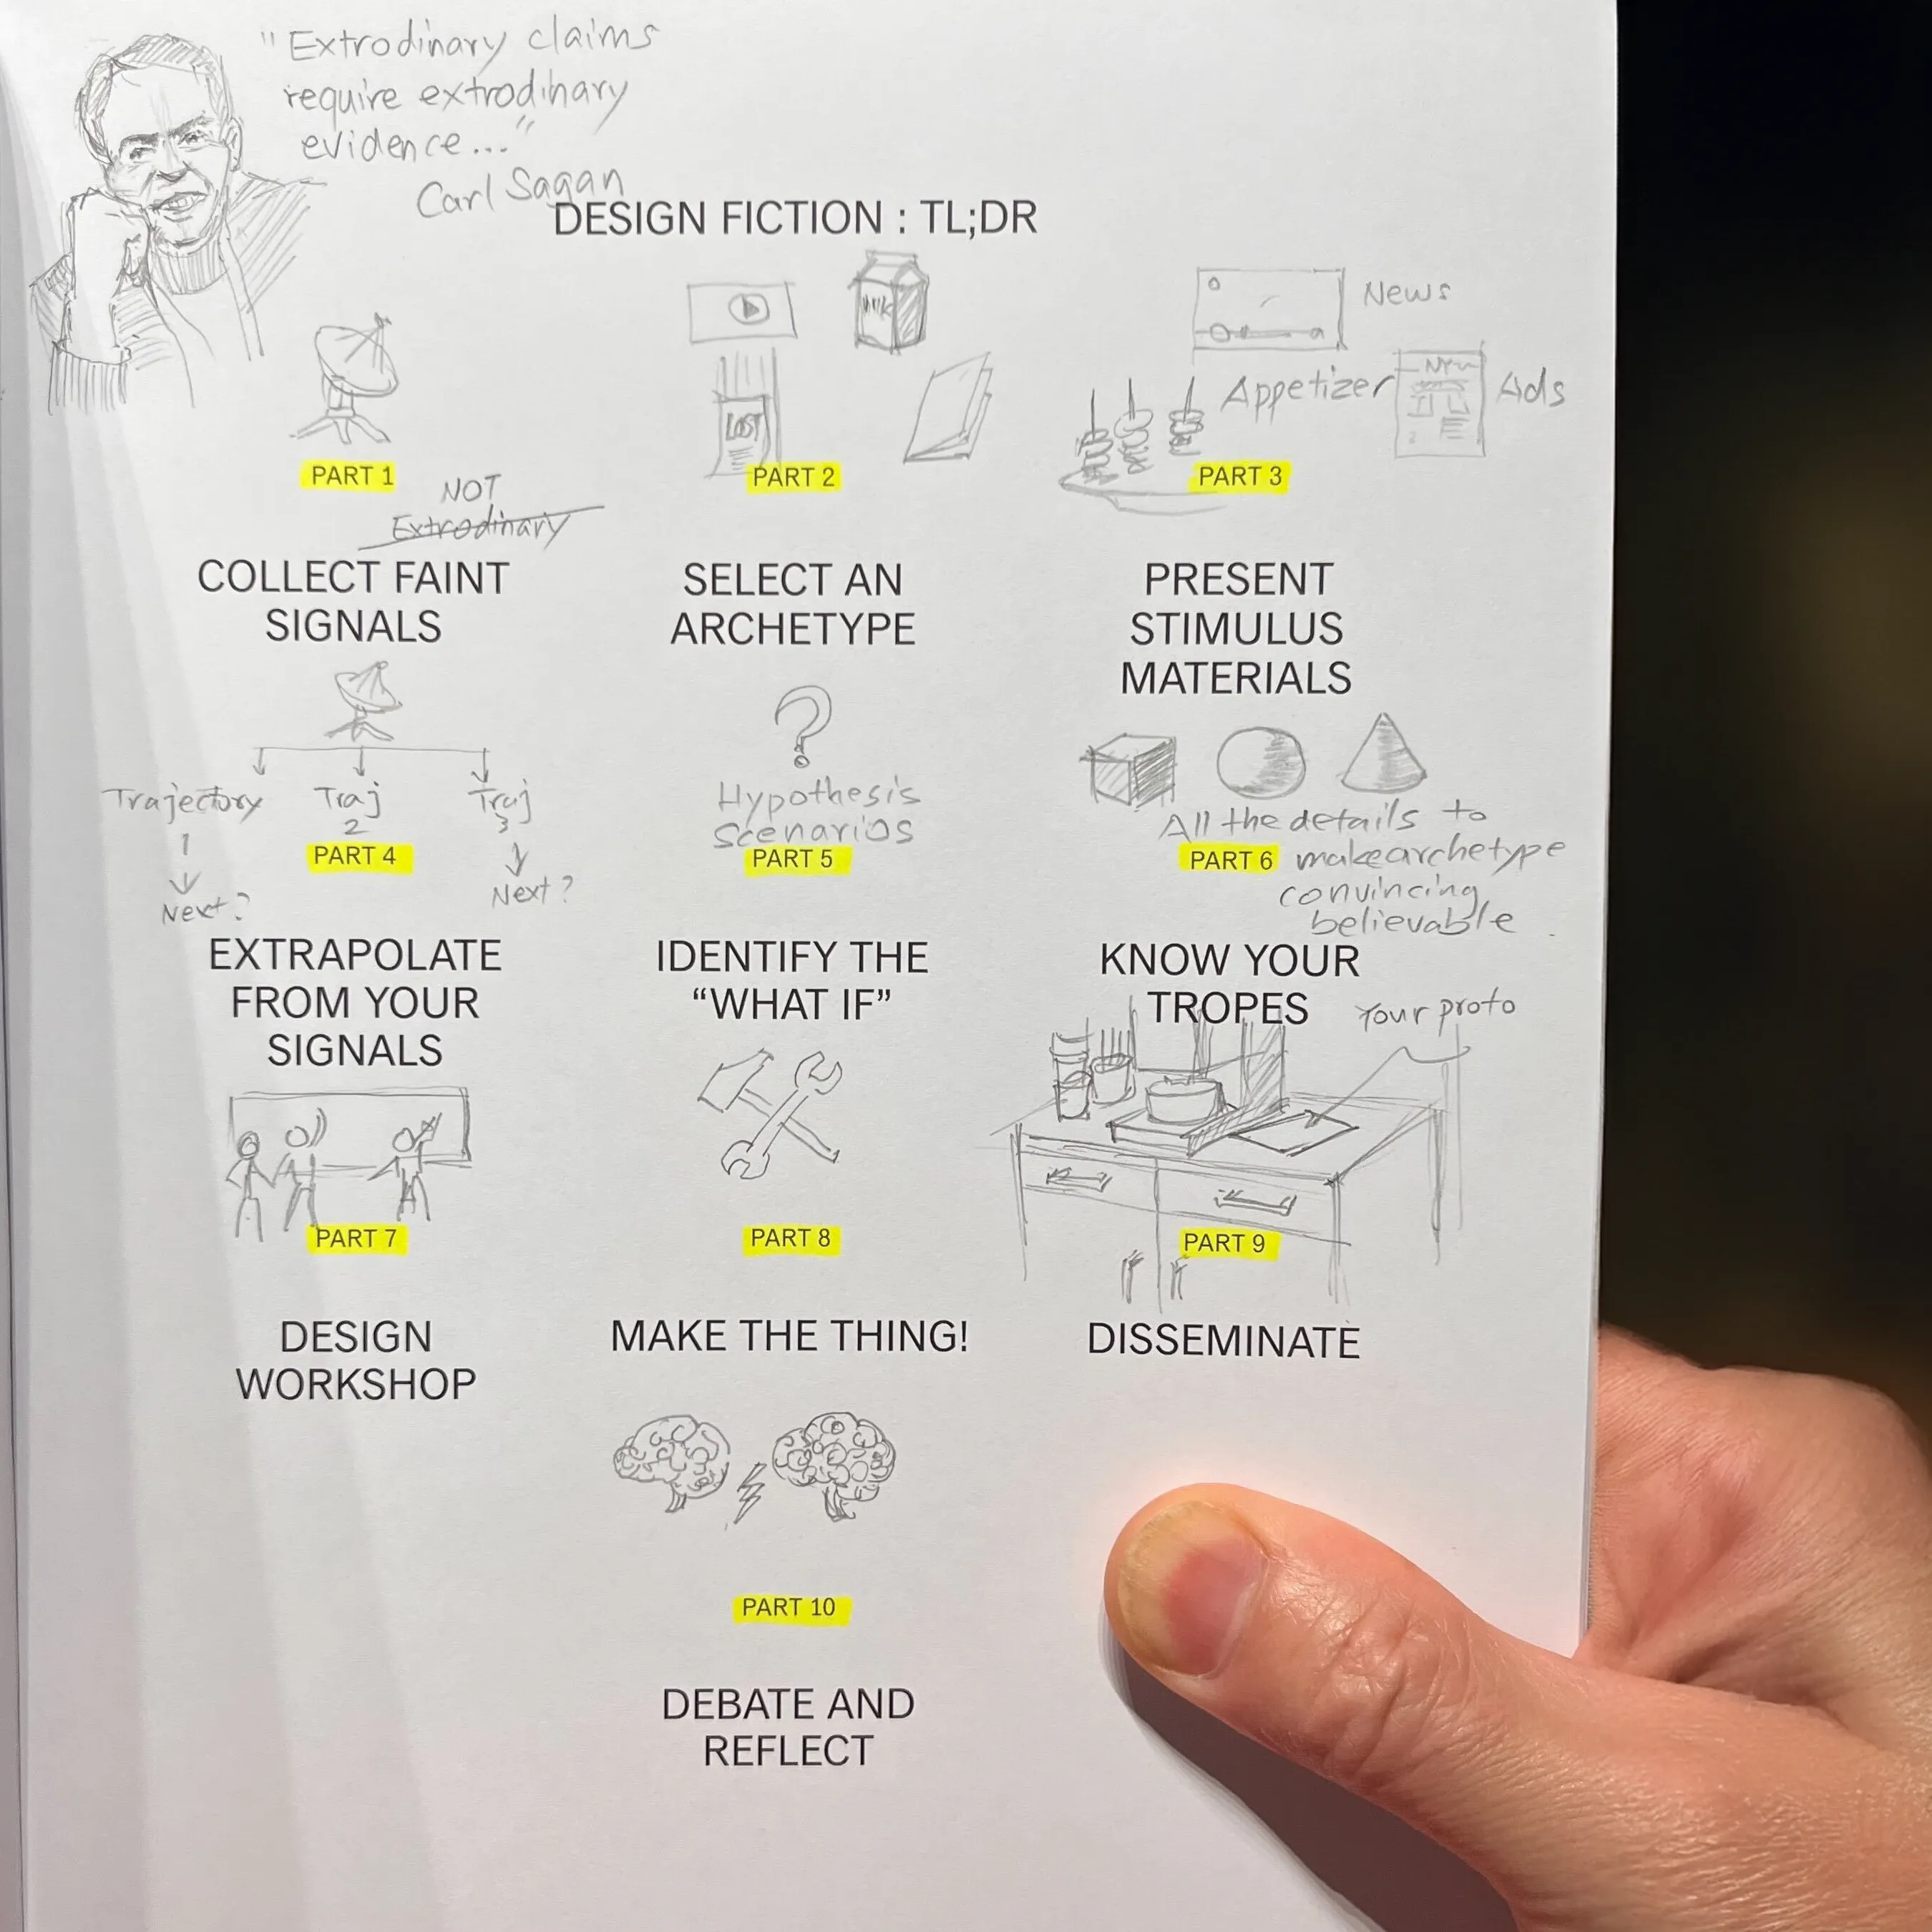 "Extrodinary claims
require extrodinary
evidence..."
Carl Sagan
DESIGN FICTION : TL;DR
MILK
LOST
News
Appetizer
Ads
PART 1
NOT
Extrodinary
COLLECT FAINT
SIGNALS
PART 2
SELECT AN
ARCHETYPE
PART 3
PRESENT
STIMULUS
MATERIALS
Trajectory
1
Next?
Traj
2
Traj
3
Next?
PART 4
EXTRAPOLATE
FROM YOUR
SIGNALS
?
Hypothesis
scenarios
PART 5
IDENTIFY THE
“WHAT IF”
All the details to
make archetype
convincing
believable
PART 6
KNOW YOUR
TROPES
Your proto
PART 7
DESIGN
WORKSHOP
PART 8
MAKE THE THING!
PART 9
DISSEMINATE
PART 10
DEBATE AND
REFLECT